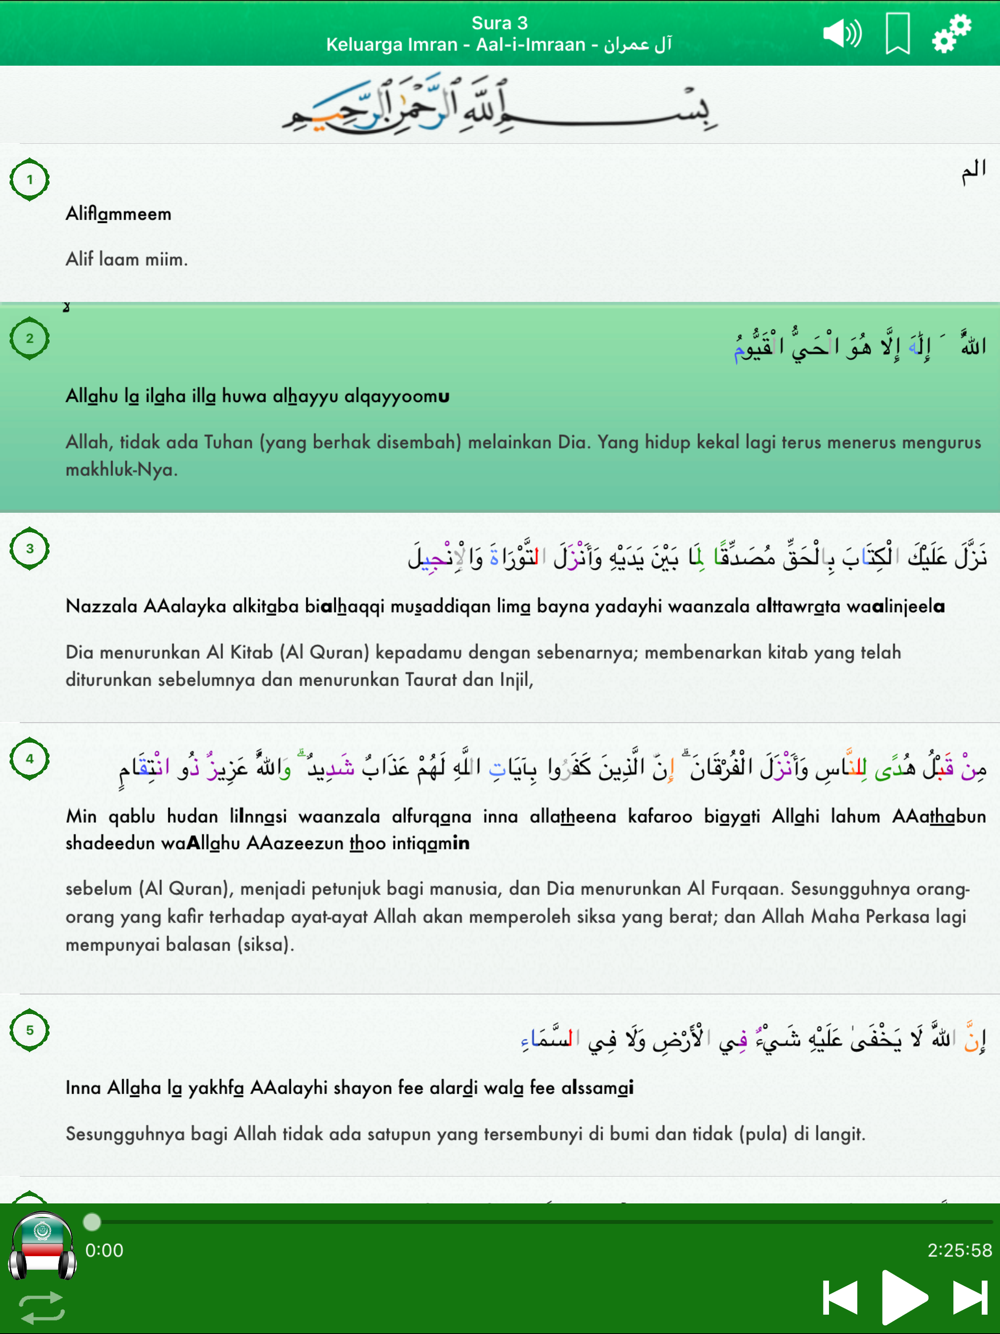 Sura 3
Keluarga Imran - Aal-i-Imraan - آل عمران
بِسْمِ ٱللَّهِ ٱلرَّحْمَٰنِ ٱلرَّحِيمِ
1
الم
Aliflammeem
Alif laam miim.
2
لَا
اللَّهُ إِلَٰهَ إِلَّا هُوَ الْحَيُّ الْقَيُّومُ
Allahu la ilaha illa huwa alhayyu alqayyoomu
Allah, tidak ada Tuhan (yang berhak disembah) melainkan Dia. Yang hidup kekal lagi terus menerus mengurus
makhluk-Nya.
3
نَزَّلَ عَلَيْكَ الْكِتَابَ بِالْحَقِّ مُصَدِّقًا لِمَا بَيْنَ يَدَيْهِ وَأَنْزَلَ التَّوْرَاةَ وَالْإِنْجِيلَ
Nazzala AAalayka alkitaba bialhaqqi musaddiqan lima bayna yadayhi waanzala alttawrata waalinjeela
Dia menurunkan Al Kitab (Al Quran) kepadamu dengan sebenarnya; membenarkan kitab yang telah
diturunkan sebelumnya dan menurunkan Taurat dan Injil,
4
مِنْ قَبْلُ هُدًى لِلنَّاسِ وَأَنْزَلَ الْفُرْقَانَ ۗ إِنَّ الَّذِينَ كَفَرُوا بِآيَاتِ اللَّهِ لَهُمْ عَذَابٌ شَدِيدٌ ۗ وَاللَّهُ عَزِيزٌ ذُو انْتِقَامٍ
Min qablu hudan lilnnasi waanzala alfurqana inna allatheena kafaroo biayati Allahi lahum AAathabun
shadeedun waAllahu AAazeezun thoo intiqamin
sebelum (Al Quran), menjadi petunjuk bagi manusia, dan Dia menurunkan Al Furqaan. Sesungguhnya orang-
orang yang kafir terhadap ayat-ayat Allah akan memperoleh siksa yang berat; dan Allah Maha Perkasa lagi
mempunyai balasan (siksa).
5
إِنَّ اللَّهَ لَا يَخْفَىٰ عَلَيْهِ شَيْءٌ فِي الْأَرْضِ وَلَا فِي السَّمَاءِ
Inna Allaha la yakhfa AAalayhi shayon fee alardi wala fee alssamai
Sesungguhnya bagi Allah tidak ada satupun yang tersembunyi di bumi dan tidak (pula) di langit.
0:00
2:25:58